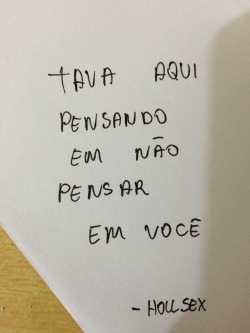 TAVA AQUI
PENSANDO
EM NÃO
PENSAR
EM VOCÊ
- HOLLSEX